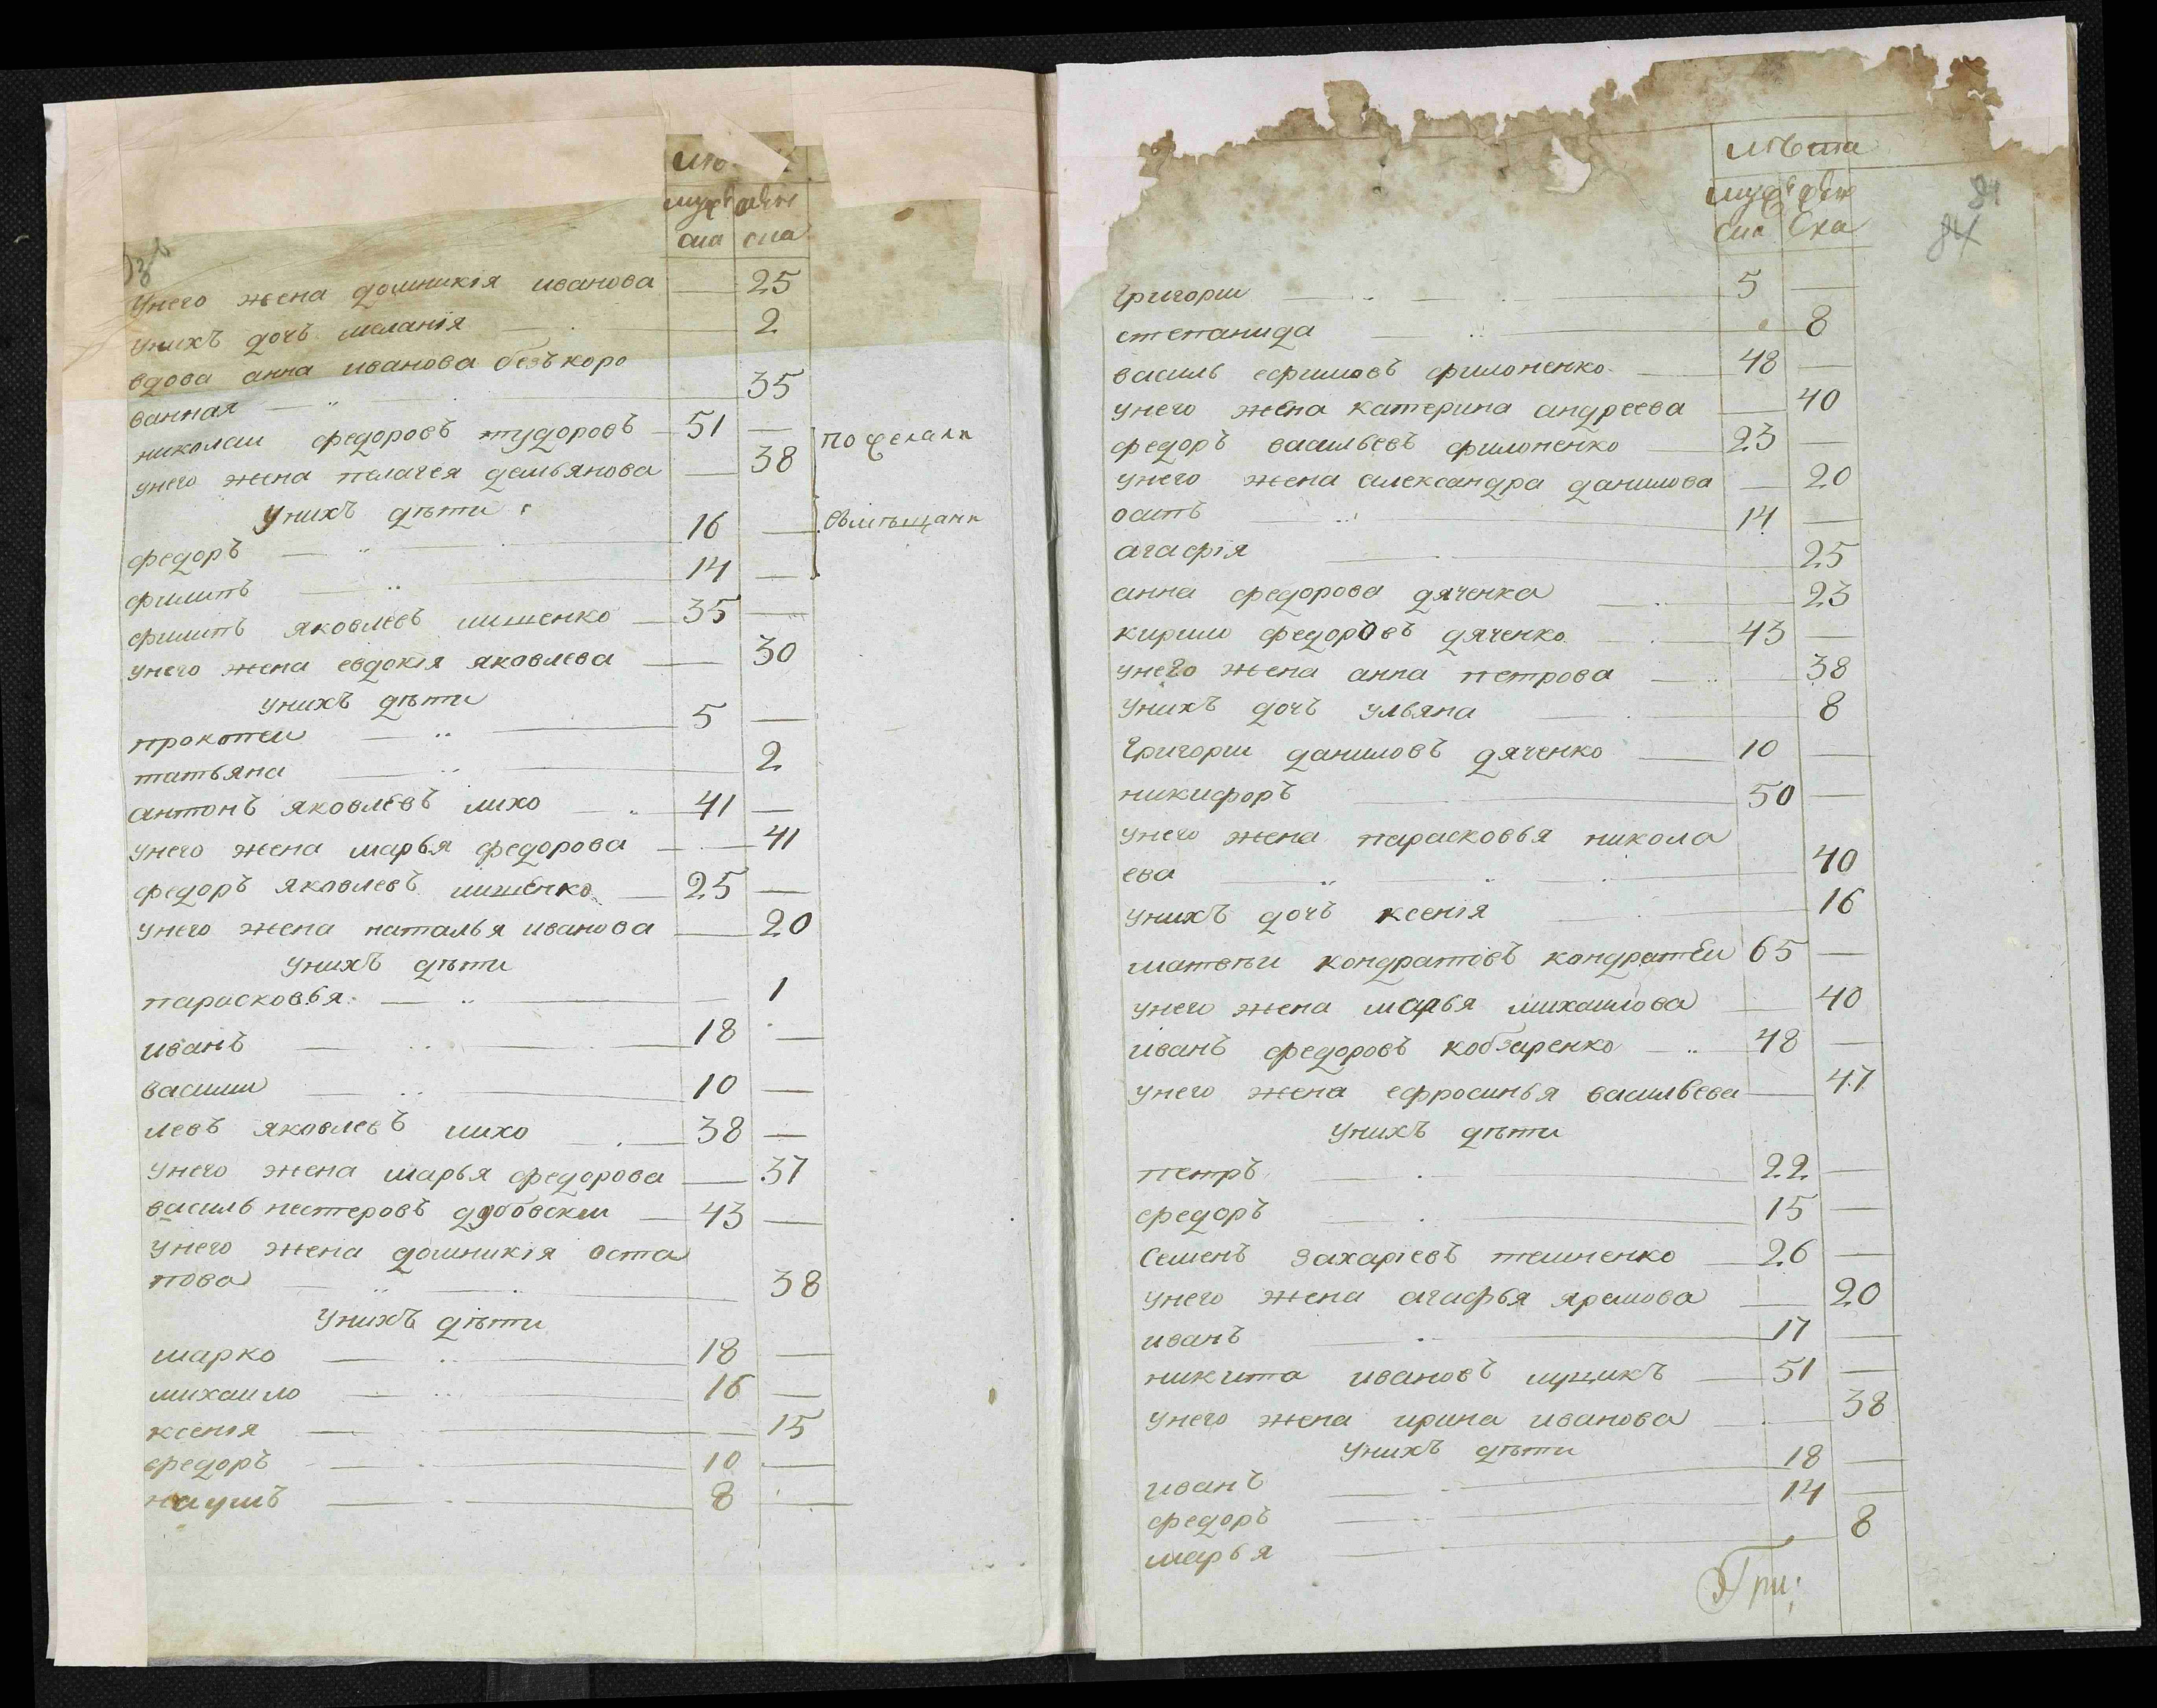 лѣ
мужеска женска
унего жена домникія иванова — 25
унихъ дочъ меланія — 2
вдова анна иванова безъкоро
ванная — 35
николаи федоровъ тудоровъ — 51 —
унего жена пелагея демьянова — 38
унихъ дѣти
федоръ — 16 —
филипъ — 14 —
филипъ яковлевъ лишенко — 35 —
унего жена евдокія яковлева — 30
унихъ дѣти
прокопеи — 5 —
татьяна — 2
антонъ яковлевъ лихо — 41 —
унего жена марья федорова — 41
федоръ яковлевъ лишенко — 25 —
унего жена наталья иванова — 20
унихъ дѣти
парасковья — 1
иванъ — 18 —
василии — 10 —
левъ яковлевъ лихо — 38 —
унего жена марья федорова — 37
василь нестеровъ дубовскии — 43 —
унего жена домникія оста
пова — 38
унихъ дѣти
марко — 18 —
михаило — 16 —
ксенія — 15
федоръ — 10 —
наумъ — 8 —
лѣта
мужеска женска
84
84
григории — 5 —
степанида — 8
василь ефимовъ филоненко — 48 —
унего жена катерина андреева — 40
федоръ васильевъ филоненко — 23 —
унего жена александра данилова — 20
осипъ — 14 —
агафія — 25
анна федорова дяченка — 23
кирило федоровъ дяченко — 43 —
унего жена анна петрова — 38
унихъ дочъ ульяна — 8
григории даниловъ дяченко — 10 —
никифоръ — 50 —
унего жена парасковья никола
ева — 40
унихъ дочъ ксенія — 16
матвѣи кондратовъ кондратеи 65 —
унего жена марья михаилова — 40
иванъ федоровъ кобзаренко — 48 —
унего жена ефросинья васильева — 47
унихъ дѣти
петръ — 22 —
федоръ — 15 —
семенъ захаріевъ темненко — 26 —
унего жена агафья яремова — 20
иванъ — 17 —
никита ивановъ лущикъ — 51 —
унего жена ирина иванова — 38
унихъ дѣти
иванъ — 18 —
федоръ — 14 —
марья — 8
Гри: